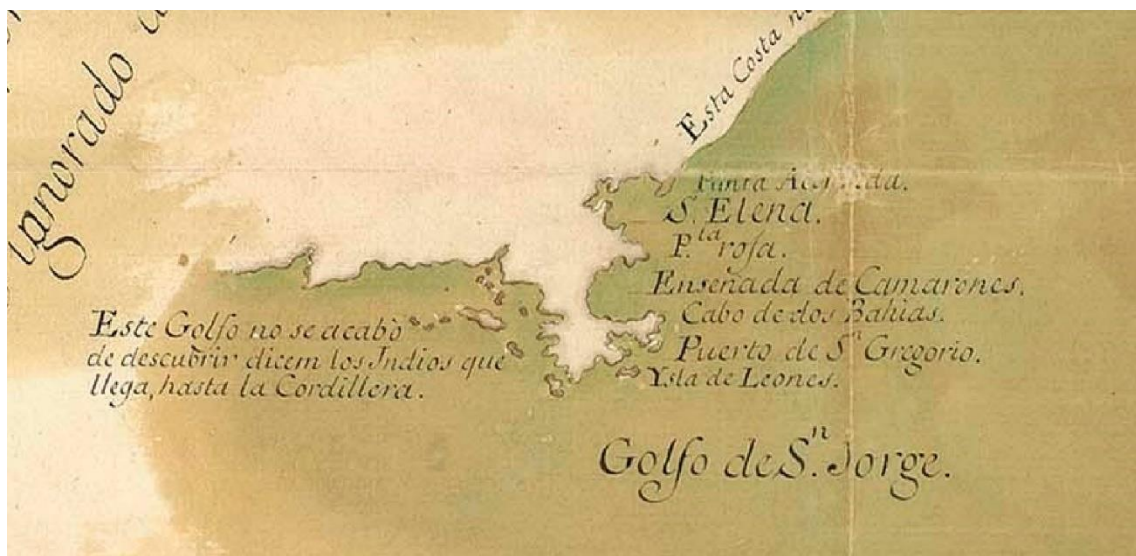 Ignorado
Esta Costa
Punta
S. Elena.
P.ta rosa.
Enseñada de Camarones.
Cabo de dos Bahias.
Puerto de Sn Gregorio.
Ysla de Leones.
Este Golfo no se acabò
de descubrir dicem los Indios que
llega, hasta la Cordillera.
Golfo de S.n Jorge.